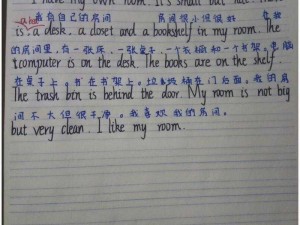 I have my own room. It's small but
我有自己的房间 房间很小但很
a bed
is a desk. a closet and a bookshelf in my room. The
的房间里,有一张床、一张桌子、一个衣橱和一个书架,电脑
computer is on the desk. The books are on the shelf.
在桌子上。书在书架上。垃圾桶在门后面。我的房
The trash bin is behind the door. My room is not big
间不大但很干净。我喜欢我的房间。
but very clean. I like my room.